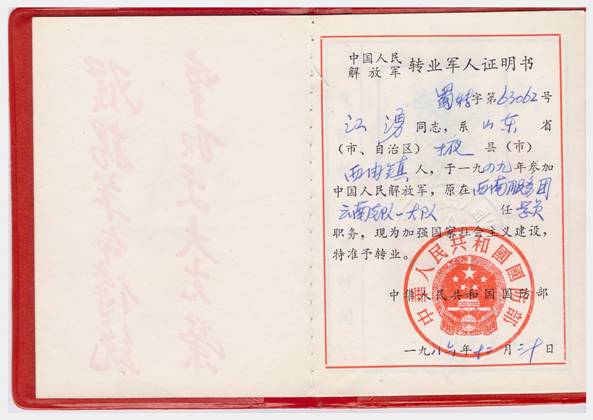 中国人民
解放军 转业军人证明书
蜀转字第63062号
江勇同志，系山东省
（市、自治区）掖县（市）
西由镇人，于一九四九年参加
中国人民解放军，原在西南服务团
云南支队一大队任学员
职务，现为加强国家社会主义建设，
特准予转业。
中华人民共和国国防部
中华人民共和國國防部
一九八六年十二月二十日